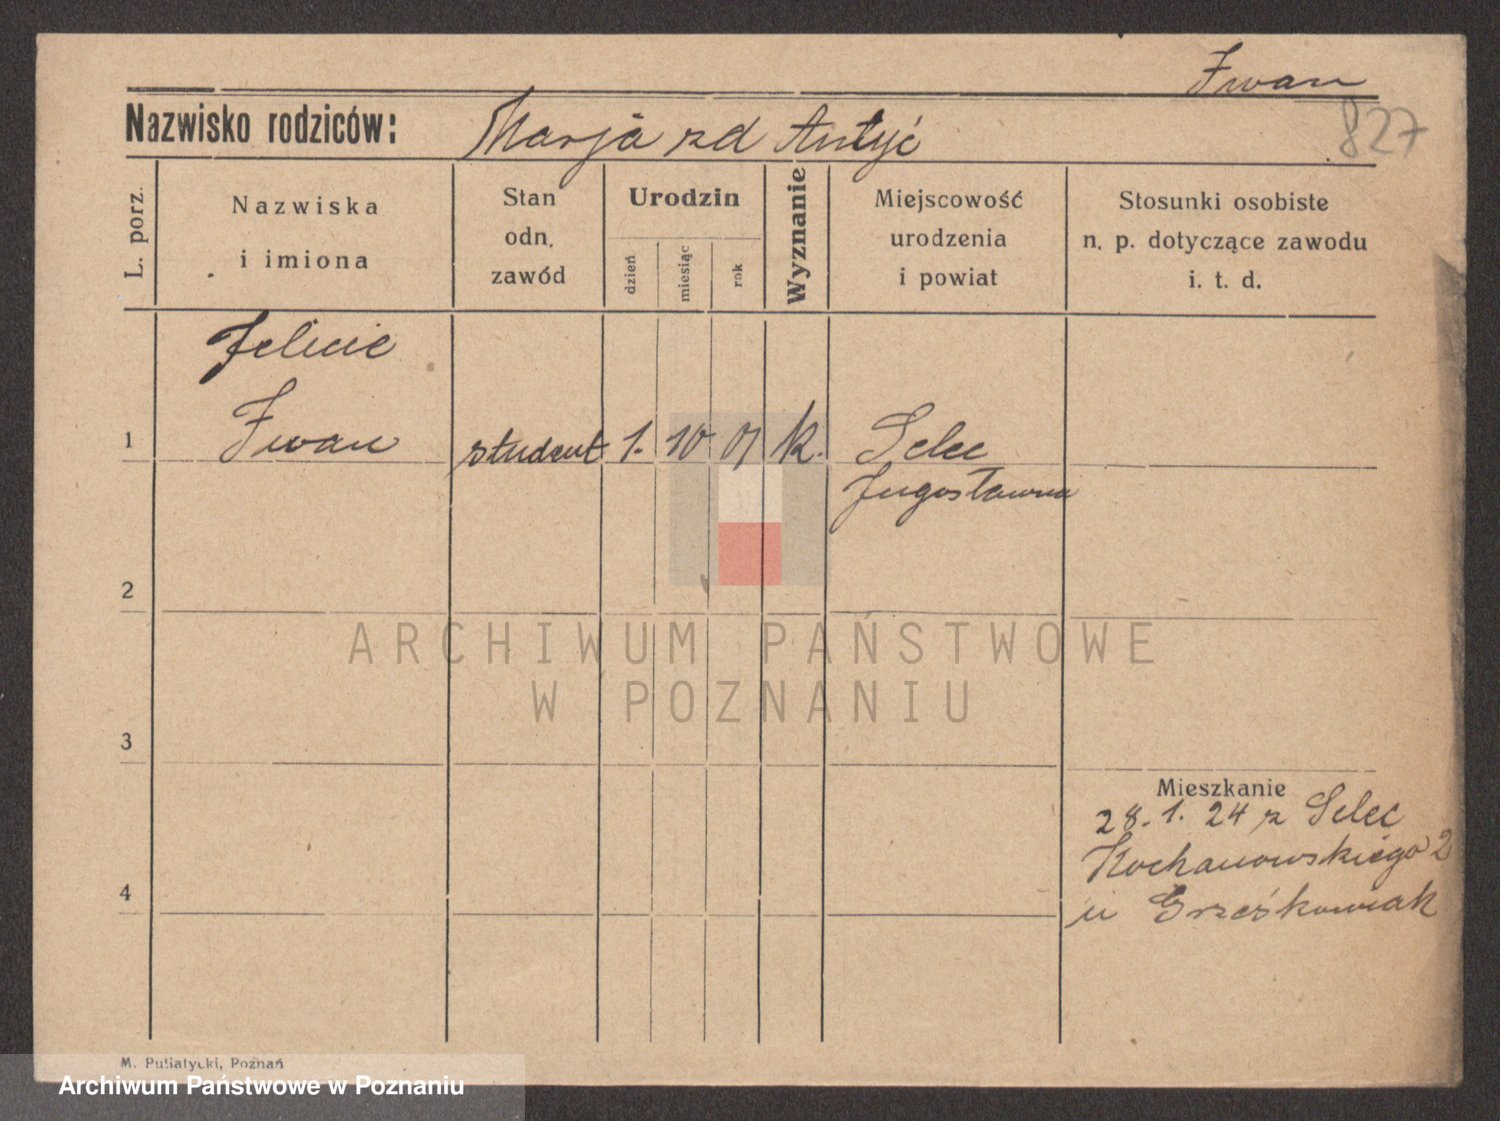 Iwan
Nazwisko rodziców: Marja zd Antyć
827
L. porz.
Nazwiska
i imiona
Stan
odn.
zawód
Urodzin
dzień
miesiąc
rok
Wyznanie
Miejscowość
urodzenia
i powiat
Stosunki osobiste
n. p. dotyczące zawodu
i. t. d.
Jelicic
1 Iwan student 1. 10 01 k. Selec
Jugosławia
2
3
4
Mieszkanie
28. 1. 24 z Selec
Kochanowskiego 2
u Grześkowiak
ARCHIWUM PAŃSTWOWE
W POZNANIU
M. Puliatycki, Poznań
Archiwum Państwowe w Poznaniu